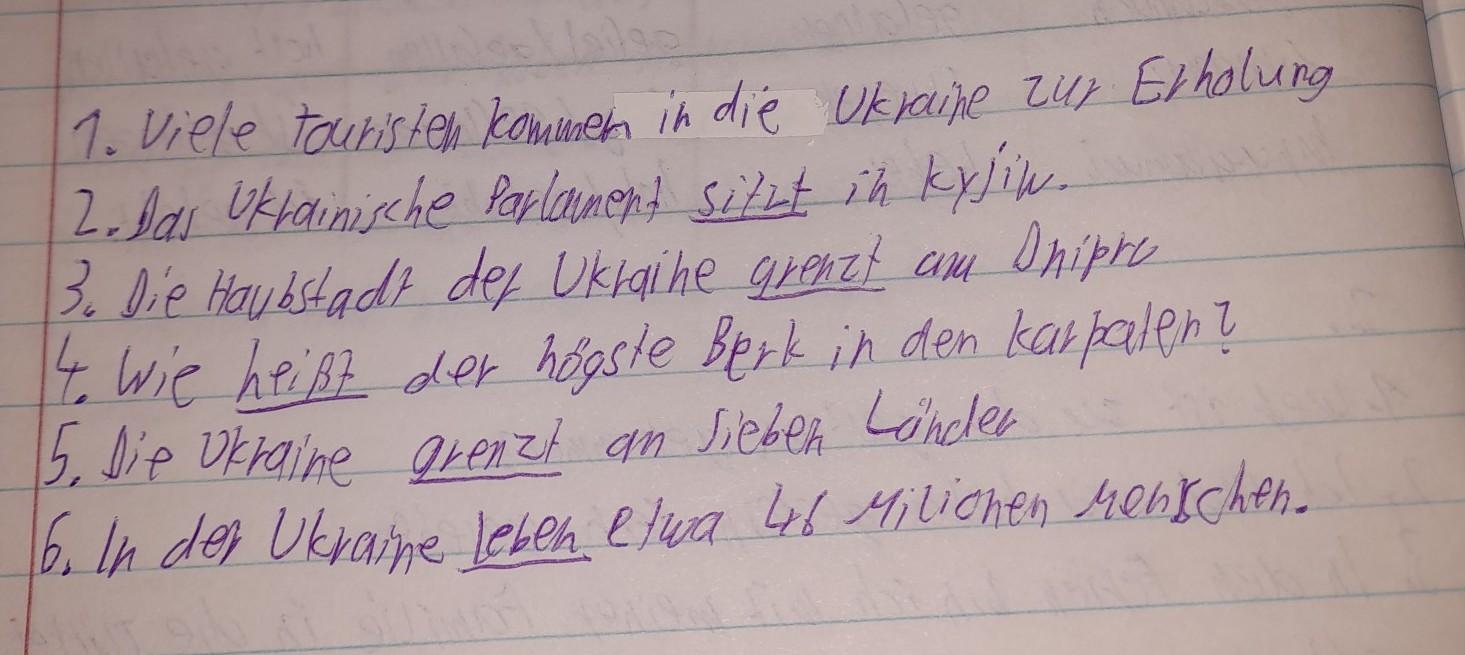 1. Viele touristen kommen in die Ukraine zur Erholung
2. Das Ukrainische Parlament sitzt in Kyjiw.
3. Die Haubstadt der Ukraine grenzt am Dnipro
4. Wie heißt der högste Berk in den Karpaten?
5. Die Ukraine grenzt an sieben Länder
6. In der Ukraine leben etwa 46 Milionen Menschen.